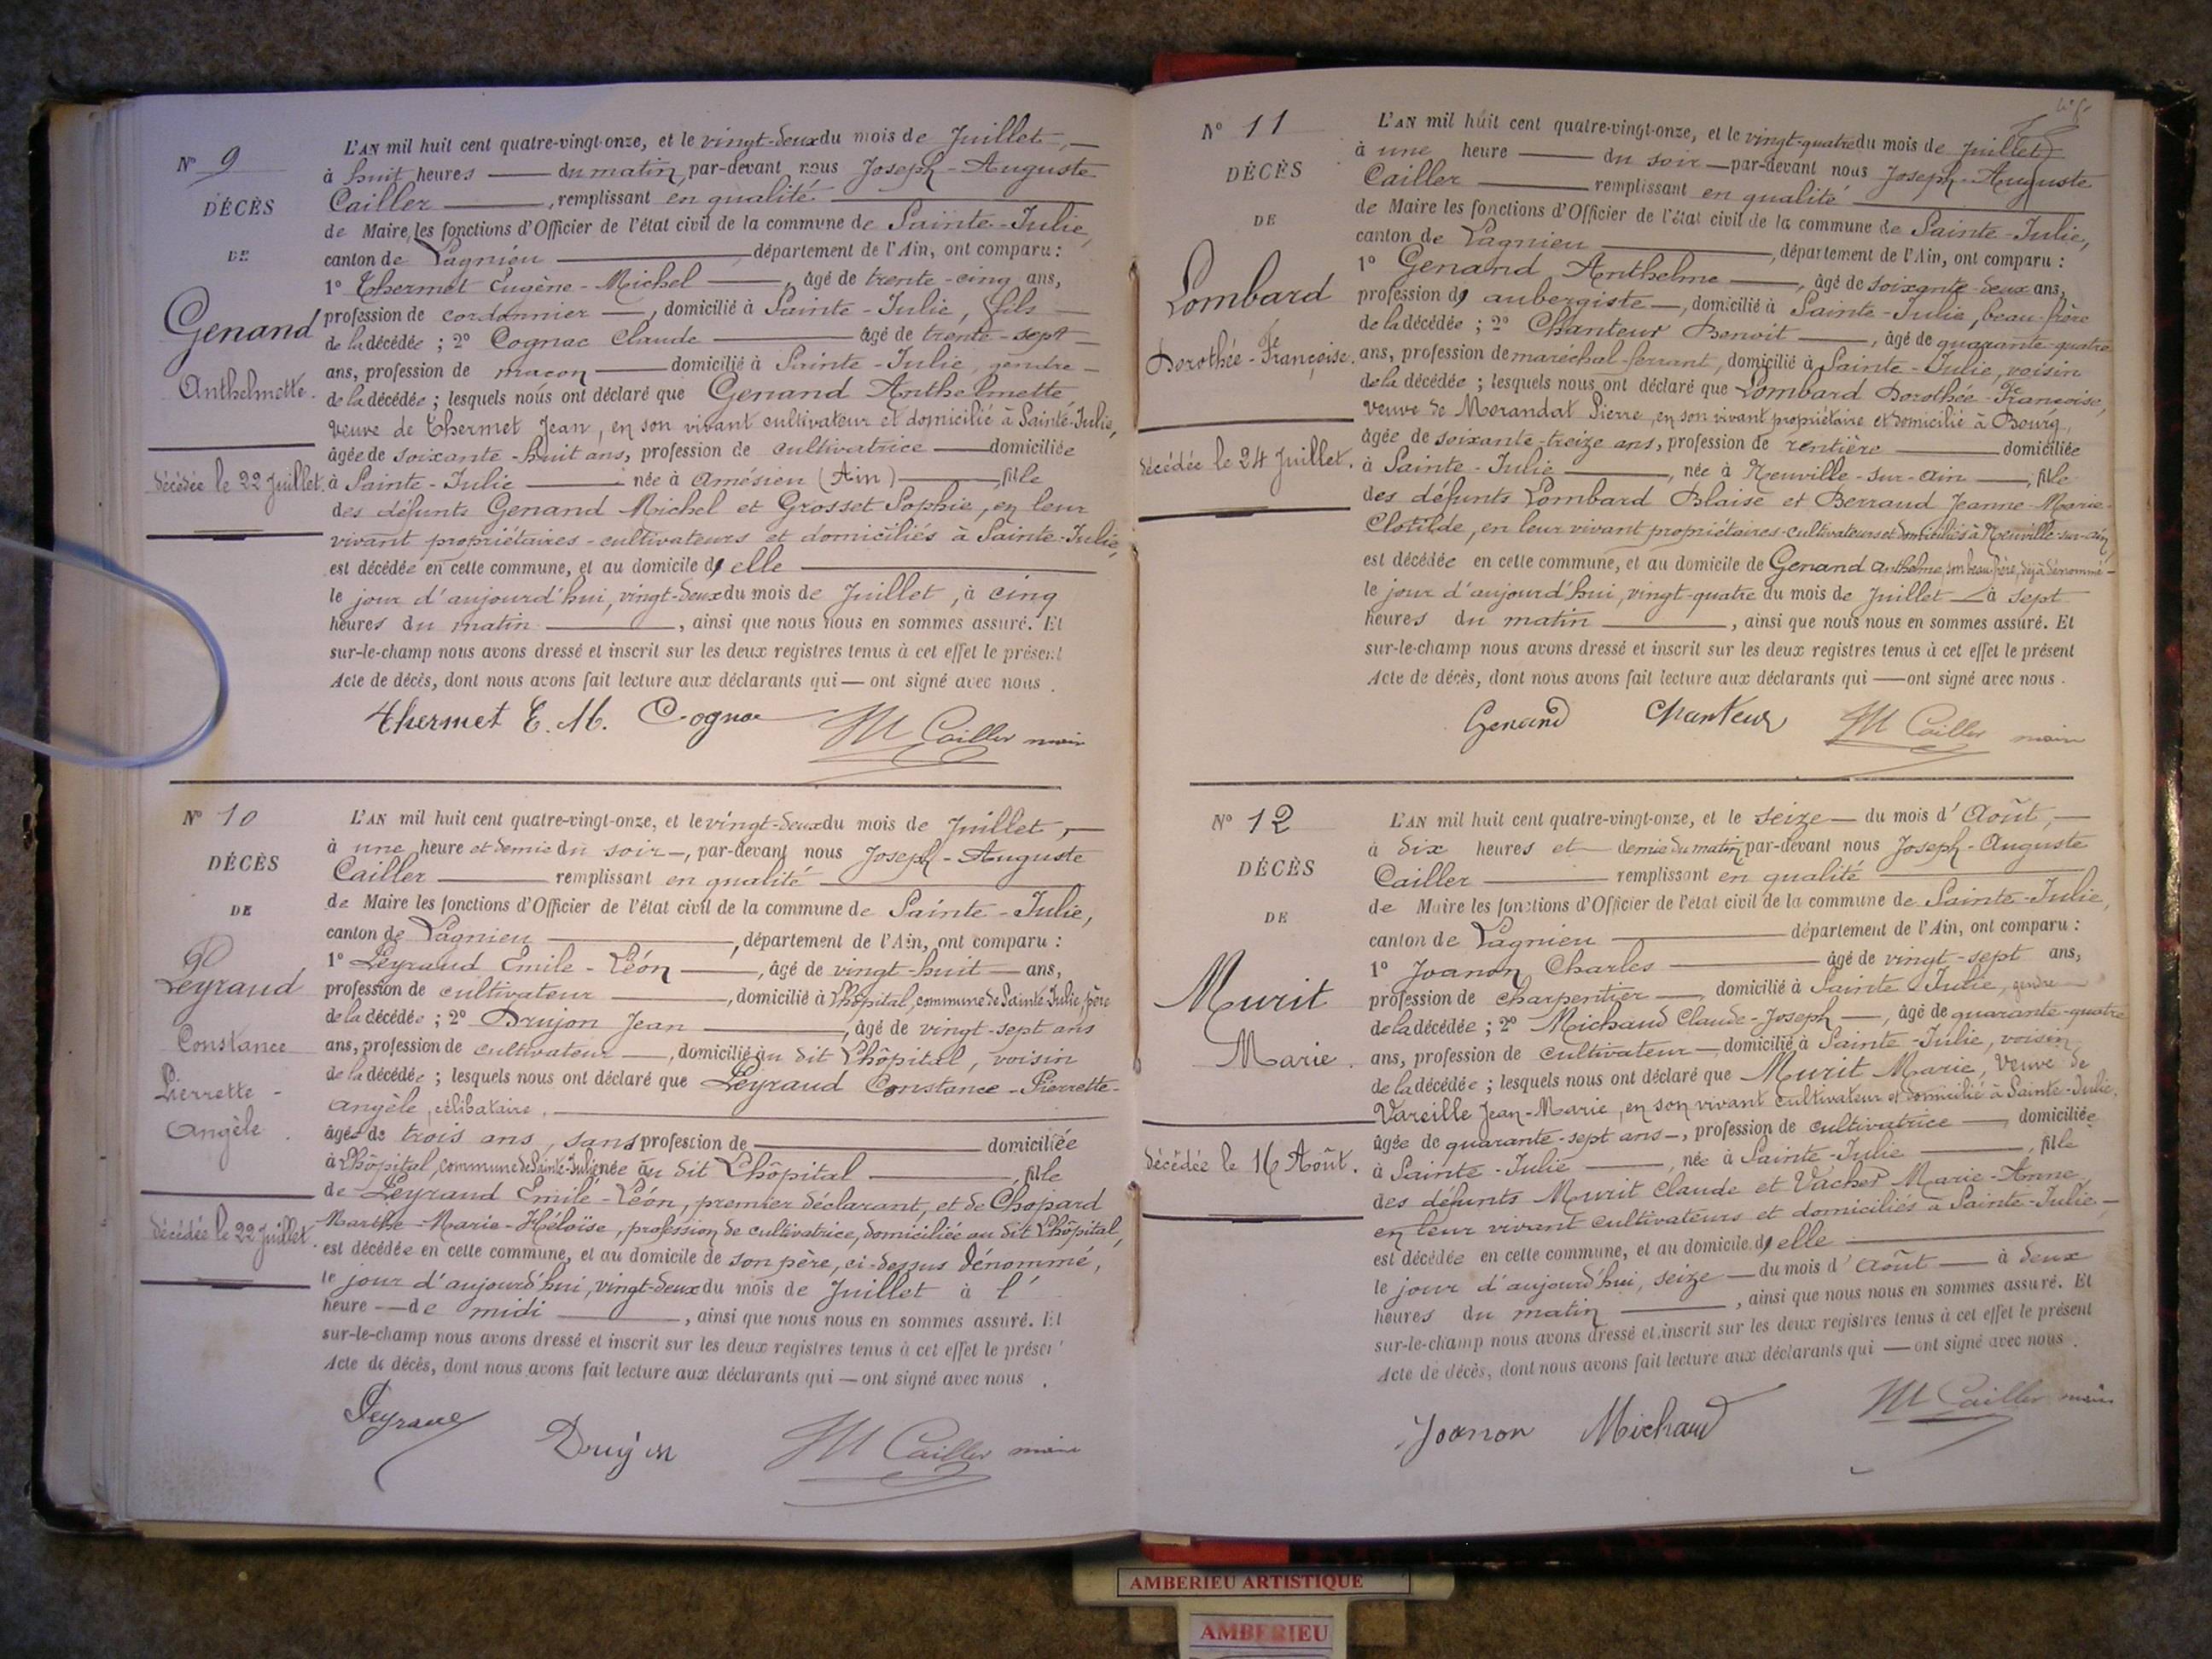 N° 9
DÉCÈS
DE
Genand
Anthelmette.
décédée le 22 Juillet.
L'AN mil huit cent quatre-vingt-onze, et le vingt-deux du mois de Juillet,
à huit heures du matin, par-devant nous Joseph-Auguste
Cailler, remplissant en qualité
de Maire, les fonctions d'Officier de l'état civil de la commune de Sainte-Julie,
canton de Lagnieu, département de l'Ain, ont comparu :
1° Thermet Eugène-Michel, âgé de trente-cinq ans,
profession de cordonnier, domicilié à Sainte-Julie, fils
de la décédée ; 2° Cognac Claude âgé de trente-sept
ans, profession de maçon domicilié à Sainte-Julie, gendre
de la décédée ; lesquels nous ont déclaré que Genand Anthelmette,
veuve de Thermet Jean, en son vivant cultivateur et domicilié à Sainte-Julie,
âgée de soixante-huit ans, profession de cultivatrice domiciliée
à Sainte-Julie née à Amésieu (Ain), fille
des défunts Genand Michel et Grosset Sophie, en leur
vivant propriétaires-cultivateurs et domiciliés à Sainte-Julie,
est décédée en cette commune, et au domicile d'elle
le jour d'aujourd'hui, vingt-deux du mois de Juillet, à cinq
heures du matin, ainsi que nous nous en sommes assuré. Et
sur-le-champ nous avons dressé et inscrit sur les deux registres tenus à cet effet le présent
Acte de décès, dont nous avons fait lecture aux déclarants qui — ont signé avec nous.
Thermet E. M. Cognac Cailler maire
N° 10
DÉCÈS
DE
Leyraud
Constance
Pierrette-
Angèle.
décédée le 22 Juillet.
L'AN mil huit cent quatre-vingt-onze, et le vingt-deux du mois de Juillet,
à une heure et demie du soir, par-devant nous Joseph-Auguste
Cailler remplissant en qualité
de Maire les fonctions d'Officier de l'état civil de la commune de Sainte-Julie,
canton de Lagnieu, département de l'Ain, ont comparu :
1° Leyraud Emile-Léon, âgé de vingt-huit ans,
profession de cultivateur, domicilié à Lhôpital, commune de Sainte-Julie, père
de la décédée ; 2° Drujon Jean, âgé de vingt-sept ans
ans, profession de cultivateur, domicilié au dit Lhôpital, voisin
de la décédée ; lesquels nous ont déclaré que Leyraud Constance-Pierrette-
Angèle, célibataire,
âgée de trois ans, sans profession de domiciliée
à Lhôpital, commune de Sainte-Julie née au dit Lhôpital, fille
de Leyraud Emile-Léon, premier déclarant, et de Chopard
Marthe-Marie-Héloïse, profession de cultivatrice, domiciliée au dit Lhôpital,
est décédée en cette commune, et au domicile de son père, ci-dessus dénommé,
le jour d'aujourd'hui, vingt-deux du mois de Juillet à l'
heure de midi, ainsi que nous nous en sommes assuré. Et
sur-le-champ nous avons dressé et inscrit sur les deux registres tenus à cet effet le présent
Acte de décès, dont nous avons fait lecture aux déclarants qui — ont signé avec nous.
Leyraud Drujon Cailler maire
N° 11
DÉCÈS
DE
Lombard
Dorothée-Françoise.
décédée le 24 Juillet.
L'AN mil huit cent quatre-vingt-onze, et le vingt-quatre du mois de Juillet
à une heure du soir par-devant nous Joseph-Auguste
Cailler remplissant en qualité
de Maire les fonctions d'Officier de l'état civil de la commune de Sainte-Julie,
canton de Lagnieu, département de l'Ain, ont comparu :
1° Genand Anthelme, âgé de soixante-deux ans,
profession d'aubergiste, domicilié à Sainte-Julie, beau-frère
de la décédée ; 2° Chanteur Benoit, âgé de quarante-quatre
ans, profession de maréchal-ferrant, domicilié à Sainte-Julie, voisin
de la décédée ; lesquels nous ont déclaré que Lombard Dorothée-Françoise,
veuve de Morandat Pierre, en son vivant propriétaire et domicilié à Bourg,
âgée de soixante-treize ans, profession de rentière domiciliée
à Sainte-Julie, née à Neuville-sur-ain, fille
des défunts Lombard Blaise et Berraud Jeanne-Marie-
Clotilde, en leur vivant propriétaires-cultivateurs et domiciliés à Neuville-sur-ain,
est décédée en cette commune, et au domicile de Genand Anthelme, son beau-frère, déjà dénommé
le jour d'aujourd'hui, vingt-quatre du mois de Juillet à sept
heures du matin, ainsi que nous nous en sommes assuré. Et
sur-le-champ nous avons dressé et inscrit sur les deux registres tenus à cet effet le présent
Acte de décès, dont nous avons fait lecture aux déclarants qui — ont signé avec nous.
Genand Chanteur Cailler maire
N° 12
DÉCÈS
DE
Murit
Marie.
décédée le 16 Août.
L'AN mil huit cent quatre-vingt-onze, et le seize du mois d'Août,
à dix heures et demie du matin par-devant nous Joseph-Auguste
Cailler remplissant en qualité
de Maire les fonctions d'Officier de l'état civil de la commune de Sainte-Julie,
canton de Lagnieu département de l'Ain, ont comparu :
1° Joanon Charles âgé de vingt-sept ans,
profession de charpentier, domicilié à Sainte-Julie, gendre
de la décédée ; 2° Michaud Claude-Joseph, âgé de quarante-quatre
ans, profession de cultivateur, domicilié à Sainte-Julie, voisin
de la décédée ; lesquels nous ont déclaré que Murit Marie, Veuve de
Vareille Jean-Marie, en son vivant cultivateur et domicilié à Sainte-Julie,
âgée de quarante-sept ans, profession de cultivatrice, domiciliée
à Sainte-Julie, née à Sainte-Julie, fille
des défunts Murit Claude et Vacher Marie-Anne,
en leur vivant cultivateurs et domiciliés à Sainte-Julie,
est décédée en cette commune, et au domicile d'elle
le jour d'aujourd'hui, seize du mois d'Août à deux
heures du matin, ainsi que nous nous en sommes assuré. Et
sur-le-champ nous avons dressé et inscrit sur les deux registres tenus à cet effet le présent
Acte de décès, dont nous avons fait lecture aux déclarants qui — ont signé avec nous.
Joanon Michaud Cailler maire
AMBERIEU ARTISTIQUE
AMBERIEU